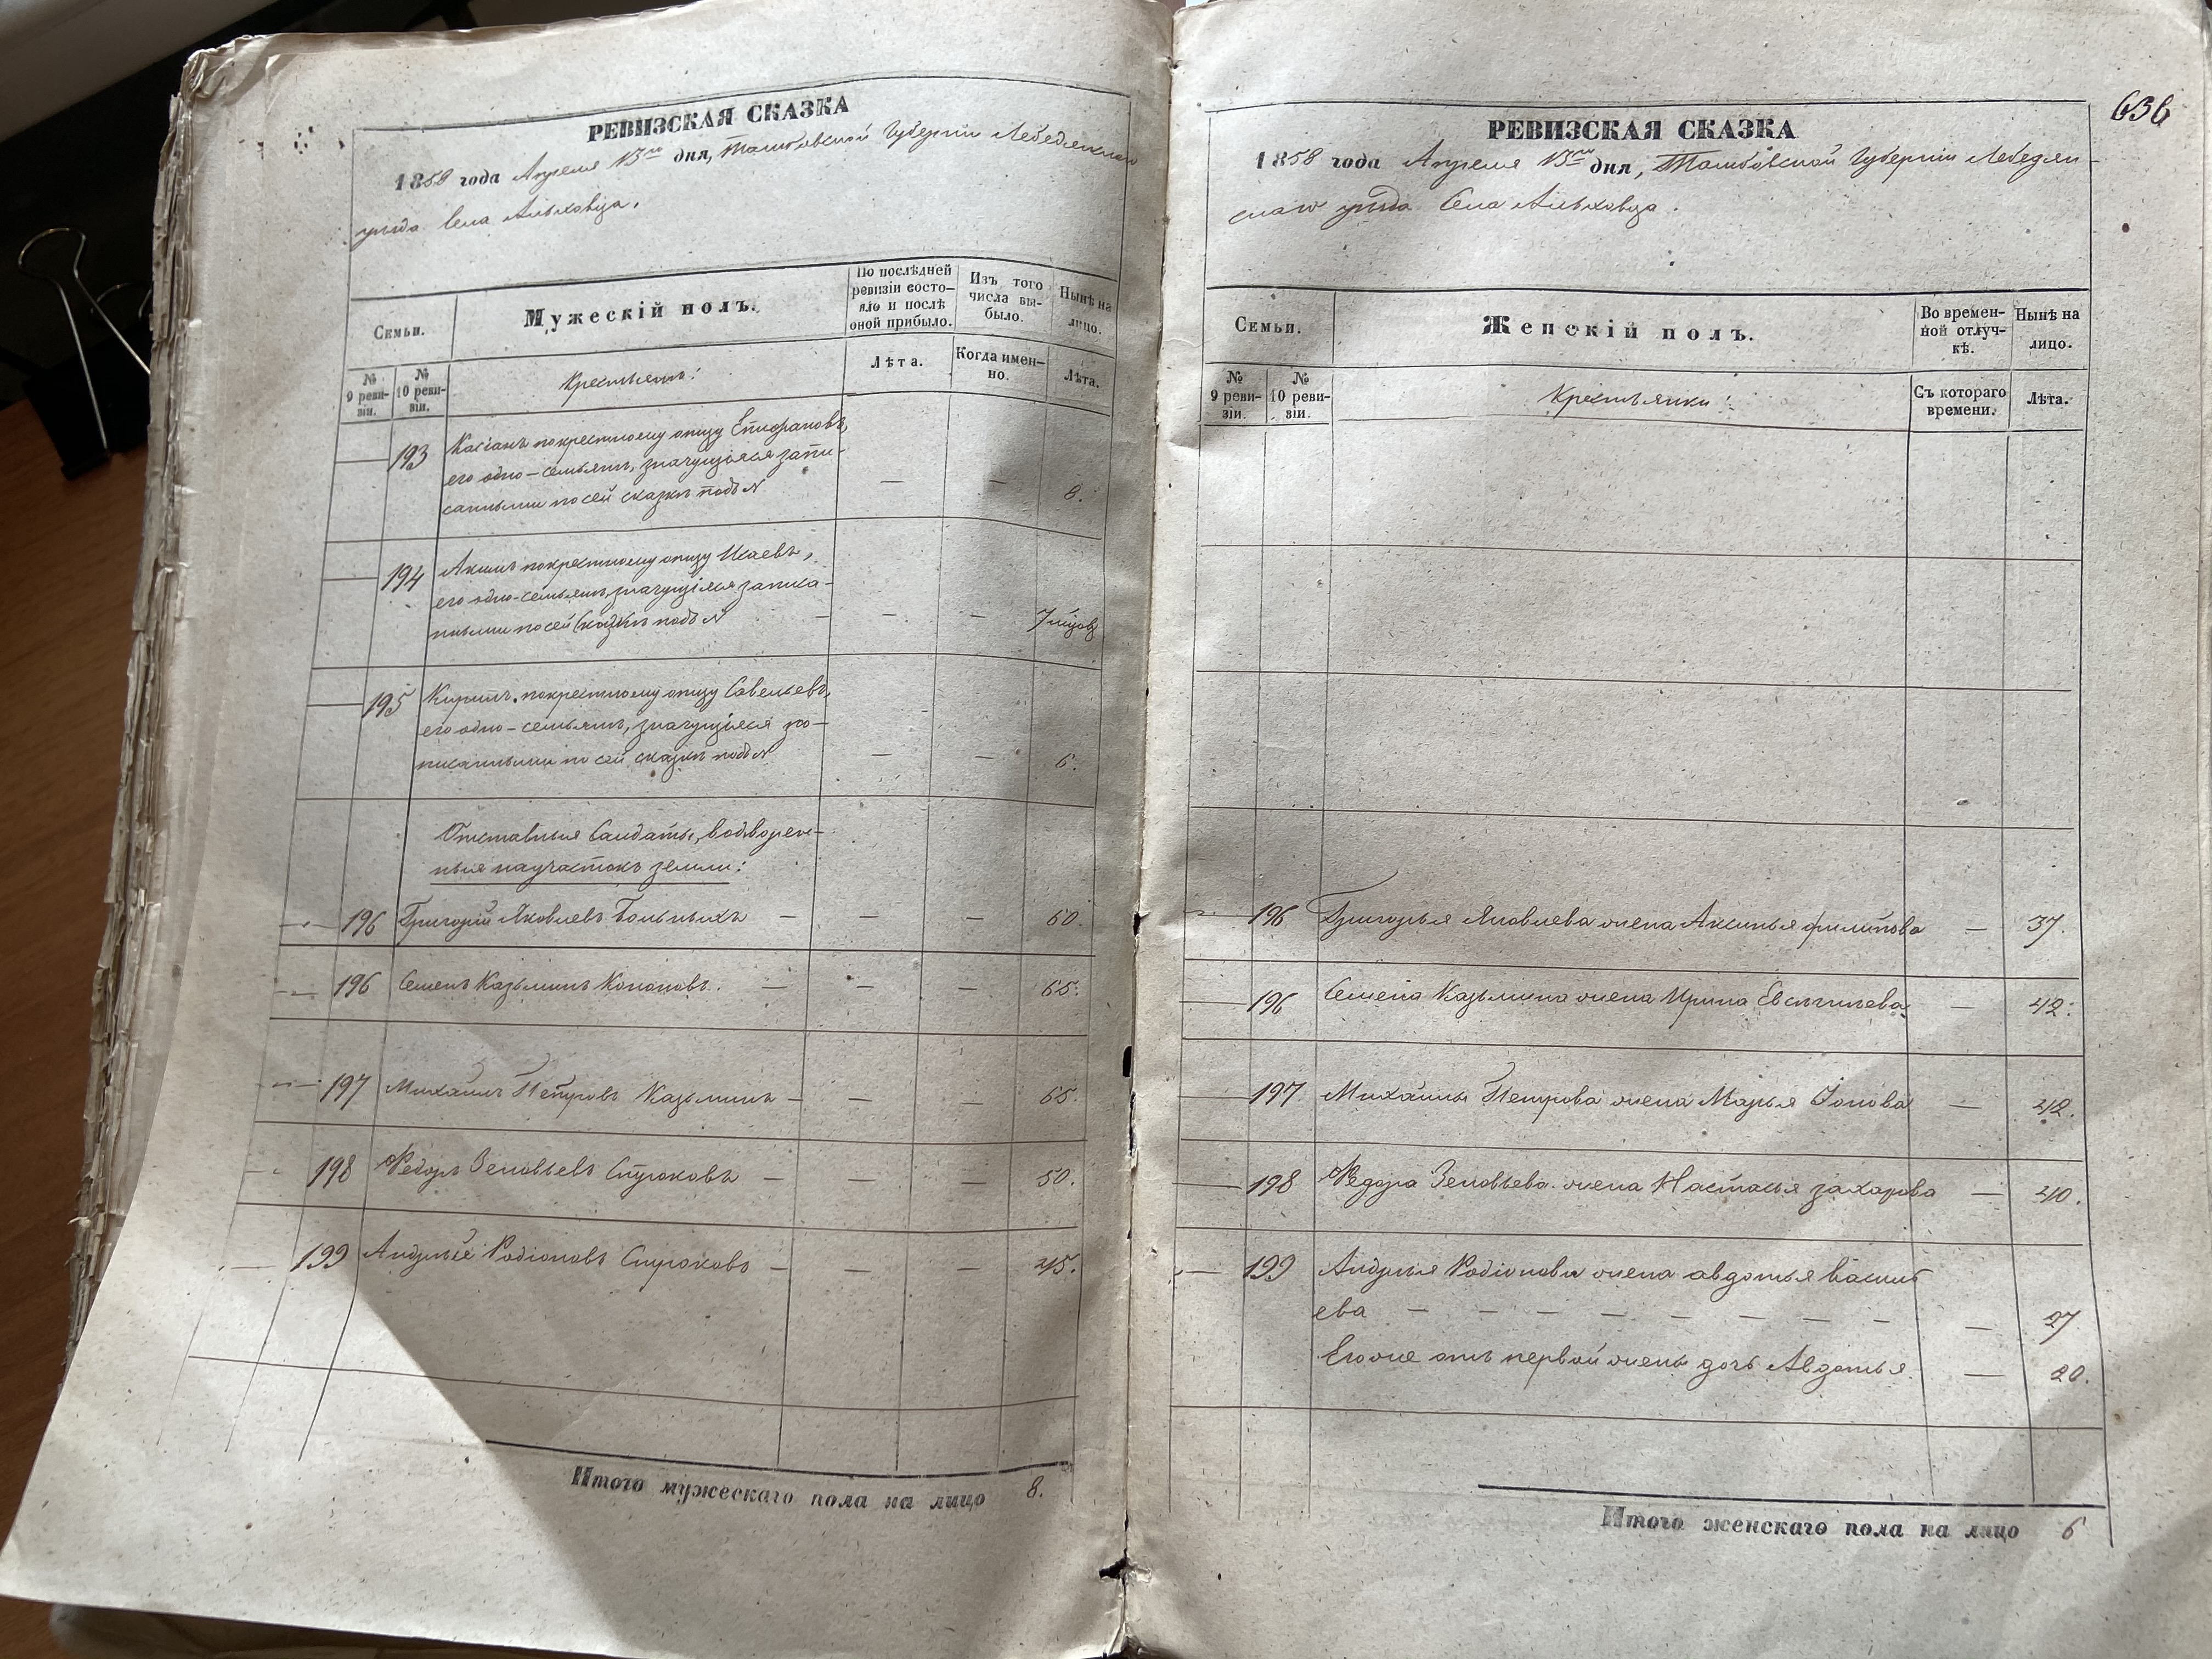 РЕВИЗСКАЯ СКАЗКА
1858 года Апреля 15го дня, Тамбовской Губерніи Лебедянскаго
уезда Села Ольховца.
Семьи.
Мужескій полъ.
По послѣдней ревизіи состо-
яло и послѣ оной прибыло.
Изъ того числа вы-
было.
Нынѣ на лицо.
№ 9 реви-
зіи.
№ 10 реви-
зіи.
Крестьянъ:
Лѣта.
Когда имен-
но.
Лѣта.
193 Касіанъ покрестному отцу Епифановъ,
его одно-семьянъ, значущіяся запи-
санными по сей сказкѣ подъ № — — 8.
194 Акимъ покрестному отцу Исаевъ,
его одно-семьянъ, значущіяся записа-
нными по сей сказкѣ подъ № — — — 7 мцов
195 покрестному отцу Савельевъ,
его одно-семьянъ, значущіяся за-
писанными по сей сказкѣ подъ № — — 6.
Отставныя Салдаты, водворен-
ныя научастокъ земли:
196 Григорій Яковлевъ Больныхъ — — — 60.
196 Семенъ Казьминъ Кононовъ. — — — 65.
197 Михайлъ Петровъ Казьминъ — — — 65.
198 Федоръ Зеновьевъ Струковъ — — — 50.
199 Андрей Родіоновъ Струковъ — — — 45.
Итого мужескаго пола на лицо 8.
636
РЕВИЗСКАЯ СКАЗКА
1858 года Апреля 15го дня, Тамбовской Губерніи Лебедян-
скаго уезда Села Ольховца.
Семьи.
Женскій полъ.
Во времен-
ной отлуч-
кѣ.
Нынѣ на лицо.
№ 9 реви-
зіи.
№ 10 реви-
зіи.
Крестьянки:
Съ котораго времени.
Лѣта.
196 Григорья Яковлева жена Аксинья филипова — 37.
196 Семена Казьмина жена Ирина — 42.
197 Михайлы Петрова жена Марья — 42.
198 Федора Зеновьева жена Настасья захарова — 40.
199 Андрея Родіонова жена авдотья васил
ева — — — — — — — — 27.
Егоже отъ первой жены дочь Авдотья — 20.
Итого женскаго пола на лицо 6